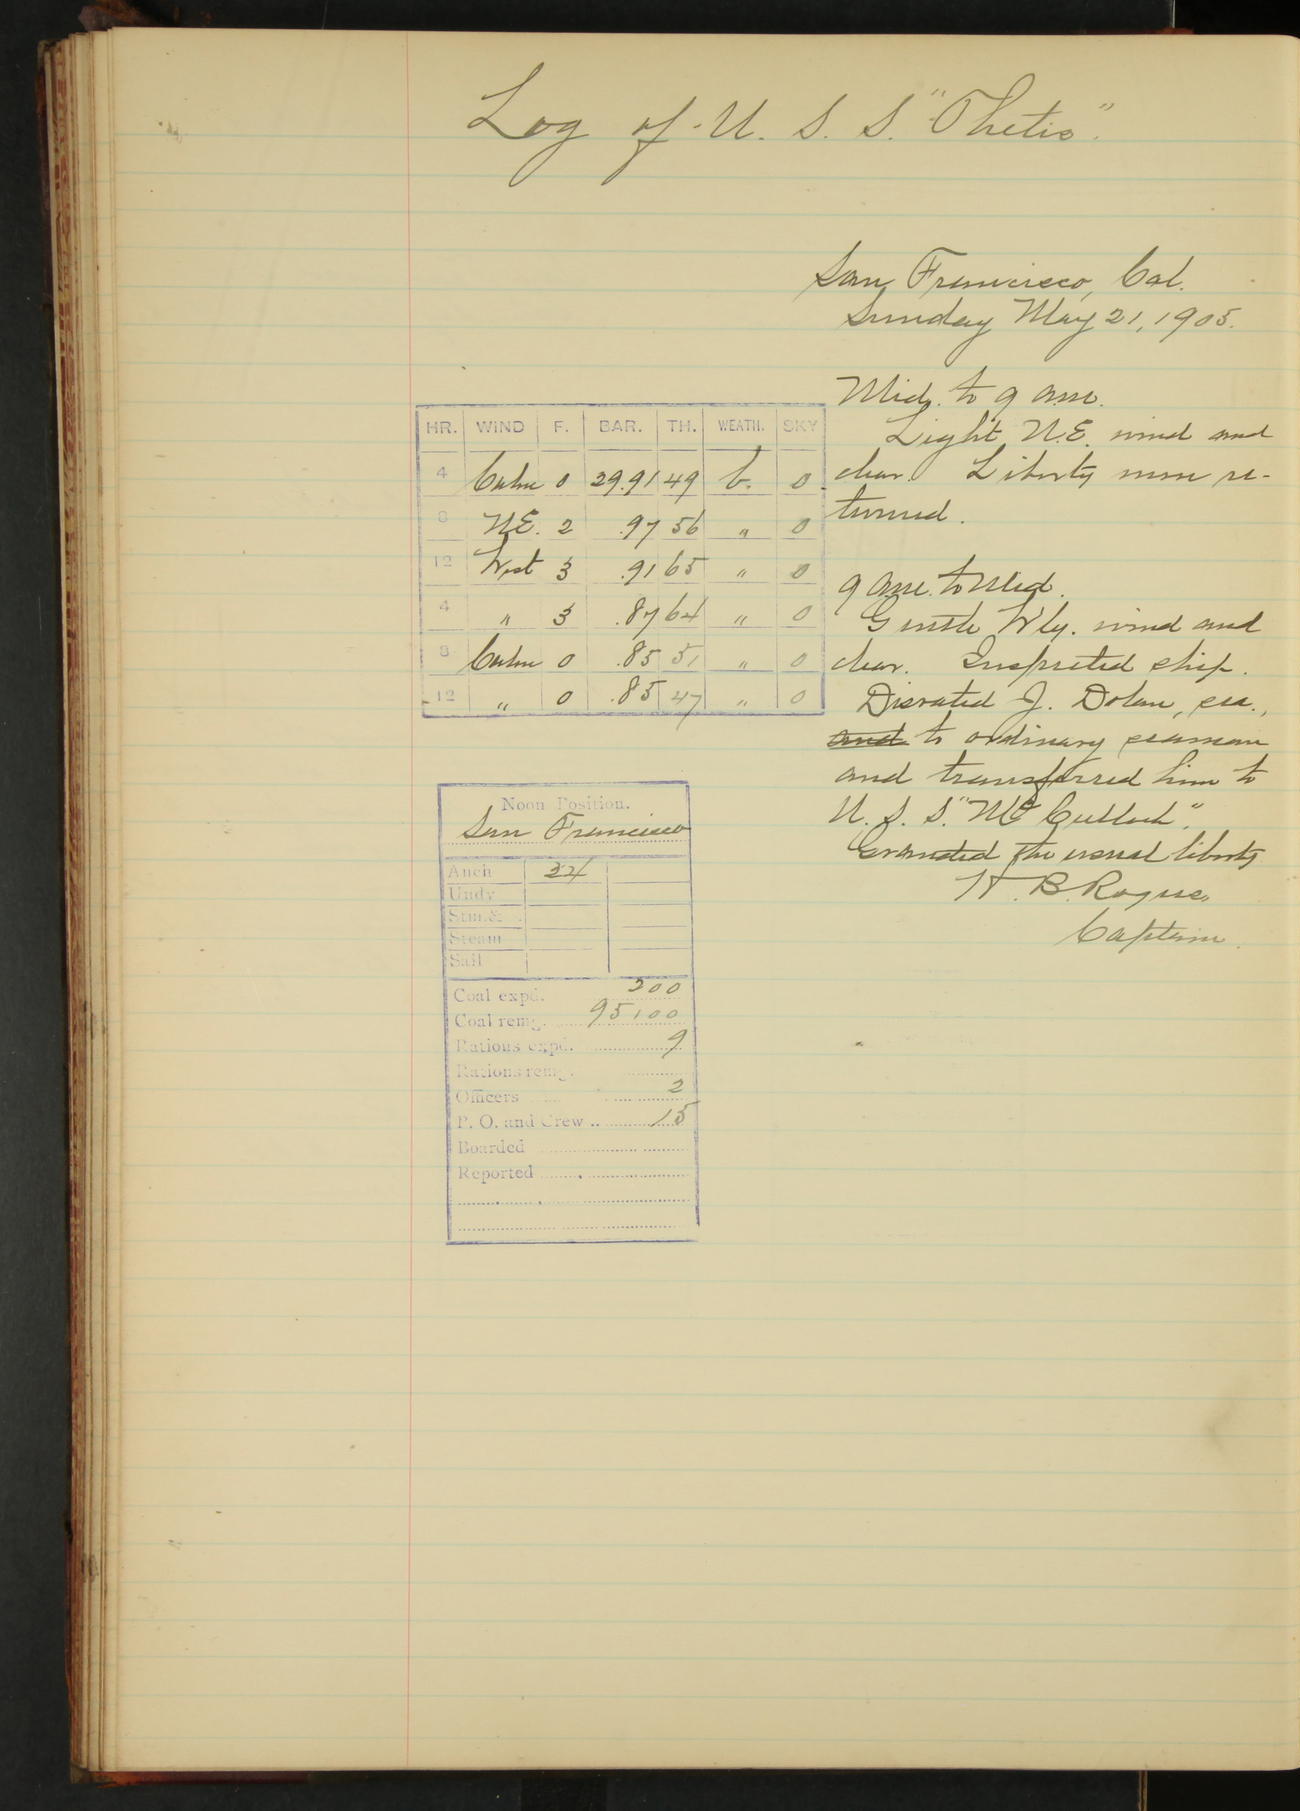 Log of U. S. S. "Thetis".
San Francisco, Cal.
Sunday May 21, 1905.
Mid. to 9 am.
Light N.E. wind and
clear. Liberty men re-
turned.
9 am. to Mid.
Gentle W'ly. wind and
clear. Inspected ship.
Disrated J. Dolan, sea.,
and to ordinary seaman
and transferred him to
U. S. S. "McCulloch".
Granted the usual liberty
Captain.
HR. WIND F. BAR. TH. WEATH. SKY
4 Calm 0 29.91 49 b. 0
8 N.E. 2 .97 56 " 0
12 West 3 .91 65 " 0
4 " 3 .87 64 " 0
8 Calm 0 .85 51 " 0
12 " 0 .85 47 " 0
Noon Position.
San Francisco
Anch 34
Undy
Stm.&
Steam
Sail
Coal expd. 200
Coal remg. 95100
Rations expd. 9
Rations remg.
Officers 2
P. O. and Crew .. 15
Boarded
Reported